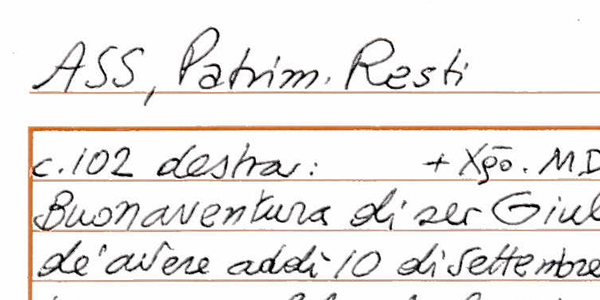 ASS, Patrim. Resti
c. 102 destra: + Xp̄o. MD
Buonaventura di ser Giul
de' avere addì 10 di settembre